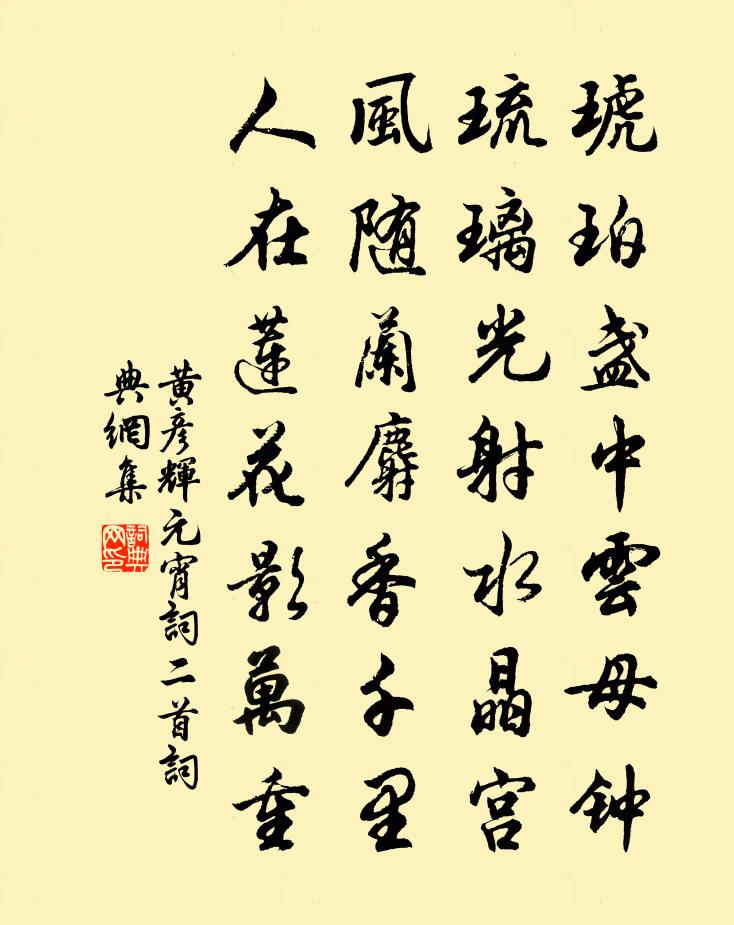 琥珀盏中雲母钟
琉璃光射水晶宫
風随蘭麝香千里
人在蓮花影萬重
黃彦輝元宵詞二首詞
典網集
詞典
网印